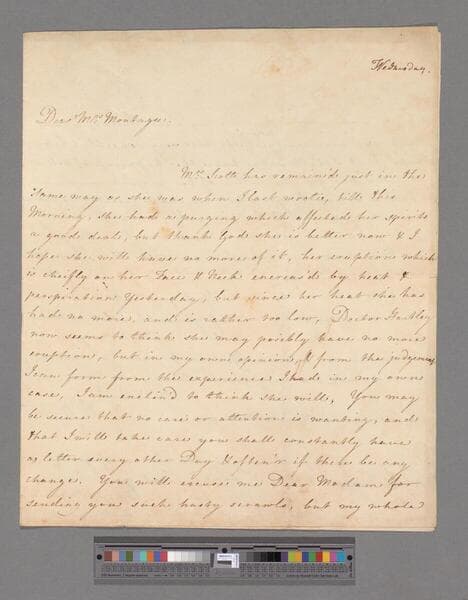 Wednesday.
Dear Mrs. Montagu.
Mrs. Scott has remained just in the
same way as she was when I last wrote, till this
Morning, she had a purging which affected her spirits
a good deal, but thank God she is better now & I
hope she will have no more of it, her eruption which
is cheifly on her Face & Neck encreas'd by heat &
perspiration Yesterday, but since her heat she has
had no more, and is rather too low, Doctor
now seems to think she may possibly have no more
eruption, but in my own opinion, & from the judgement
I can form from the experience I had in my own
case, I am enclin'd to think she will, You may
be secure that no care or attention is wanting, and
that I will take care you shall constantly have
a letter every other Day & often'r if there be any
change. You will excuse me Dear Madam for
sending you such hasty scrawls, but my whole